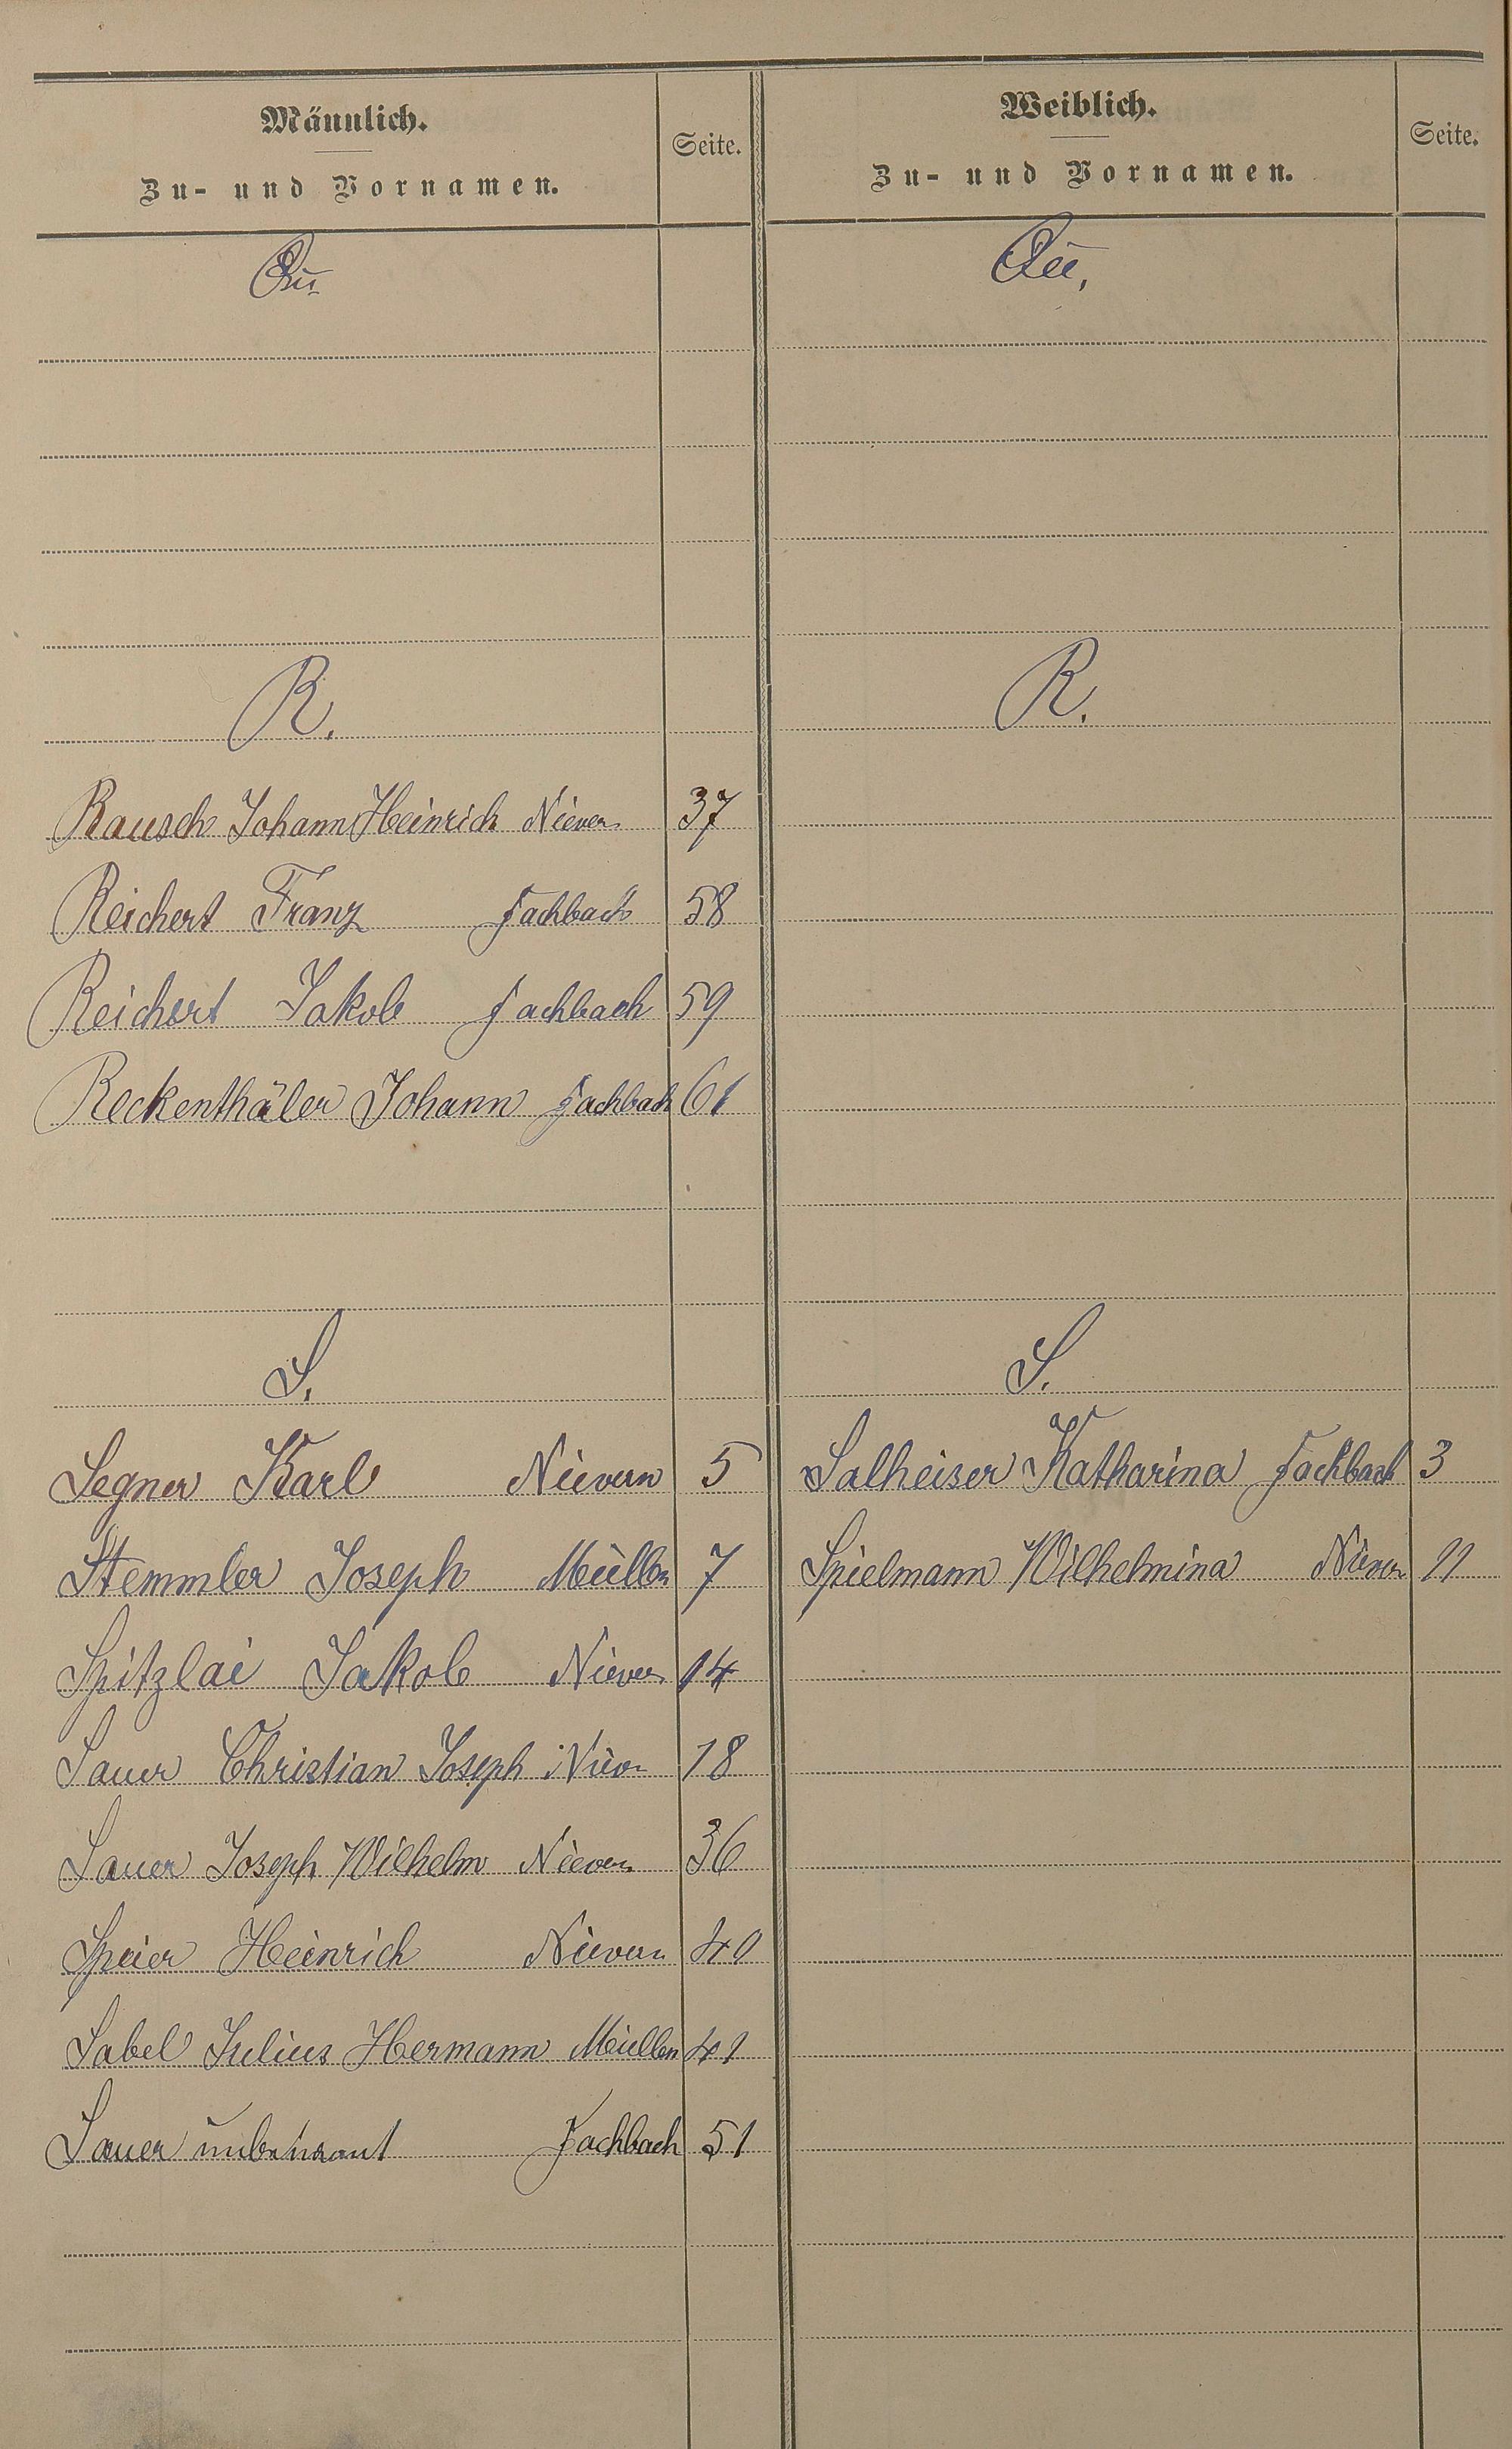 Männlich.
Zu- und Vornamen.
Seite.
Qu.
R.
Rausch Johann Heinrich Nievern 37
Reichert Franz Fachbach 58
Reichert Jakob Fachbach 59
Reckenthäler Johann Fachbach 61
S.
Segner Karl Nievern 5
Stemmler Joseph Miellen 7
Spitzlai Jakob Nievern 14
Sauer Christian Joseph Nievern 18
Sauer Joseph Wilhelm Nievern 36
Speier Heinrich Nievern 40
Sabel Julius Hermann Miellen 41
Sauer unbekannt Fachbach 51
Weiblich.
Zu- und Vornamen.
Seite.
Qu.
R.
S.
Salheiser Katharina Fachbach 3
Spielmann Wilhelmina Nievern 11